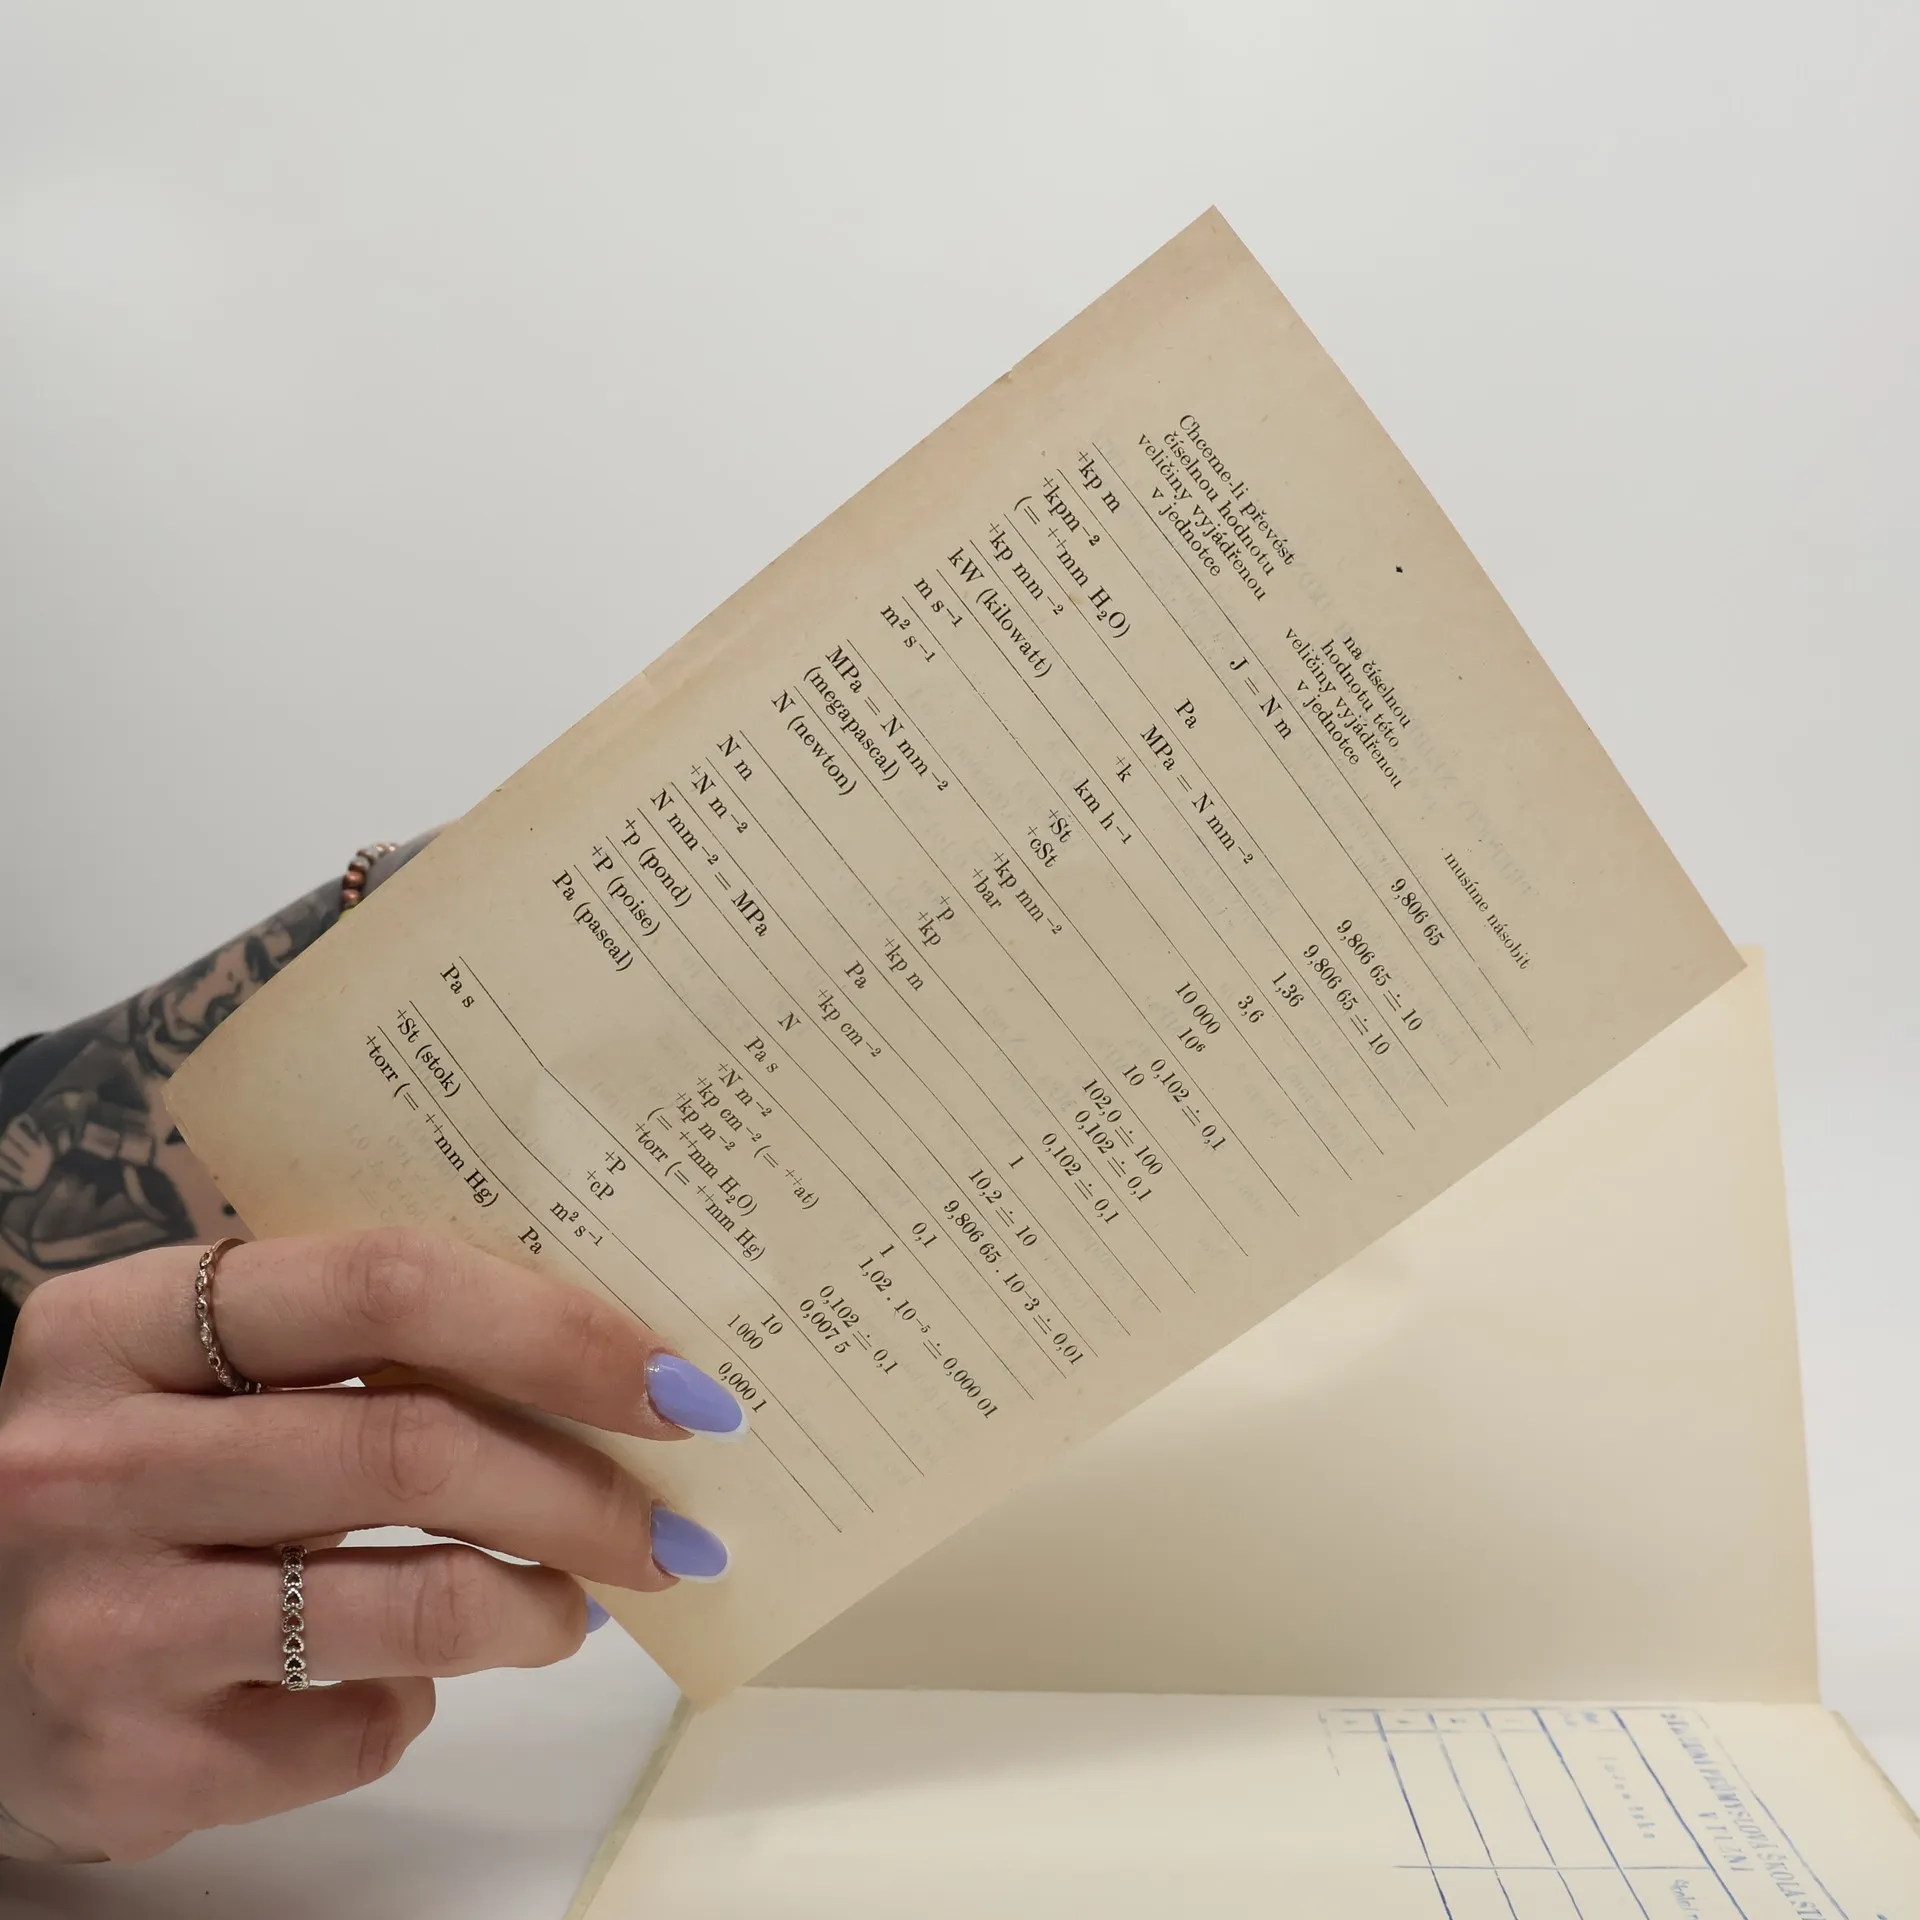 Chceme-li převést
číselnou hodnotu
veličiny vyjádřenou
v jednotce
na číselnou
hodnotu této
veličiny vyjádřenou
v jednotce
musíme násobit
⁺kp m J = N m 9,806 65
⁺kpm⁻² Pa 9,806 65 ≐ 10
(= ⁺⁺mm H₂O)
⁺kp mm⁻² MPa = N mm⁻² 9,806 65 ≐ 10
kW (kilowatt) ⁺k 1,36
m s⁻¹ km h⁻¹ 3,6
m² s⁻¹ ⁺St 10 000
⁺cSt 10⁶
MPa = N mm⁻² ⁺kp mm⁻² 0,102 ≐ 0,1
(megapascal) ⁺bar 10
N (newton) ⁺p 102,0 ≐ 100
⁺kp 0,102 ≐ 0,1
N m ⁺kp m 0,102 ≐ 0,1
⁺N m⁻² Pa 1
N mm⁻² = MPa ⁺kp cm⁻² 10,2 ≐ 10
⁺p (pond) N 9,806 65 . 10⁻³ ≐ 0,01
⁺P (poise) Pa s 0,1
Pa (pascal) ⁺N m⁻² 1
⁺kp cm⁻² (= ⁺⁺at) 1,02 . 10⁻⁵ ≐ 0,000 01
⁺kp m⁻²
(= ⁺⁺mm H₂O) 0,102 ≐ 0,1
⁺torr (= ⁺⁺mm Hg) 0,007 5
Pa s ⁺P 10
⁺cP 1 000
⁺St (stok) m² s⁻¹ 0,000 1
⁺torr (= ⁺⁺mm Hg) Pa
PRŮMYSLOVÁ ŠKOLA